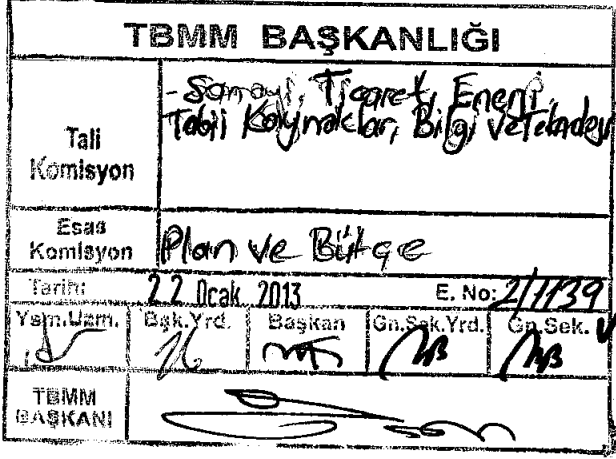 TBMM BAŞKANLIĞI
Tali Komisyon
- Sanayi, Ticaret, Enerji,
Tabii Kaynaklar, Bilgi ve Teknoloji
Esas Komisyon
Plan ve Bütçe
Tarih: 22 Ocak 2013 E. No: 2/1139
Ysm.Uzm. Bşk.Yrd. Başkan Gn.Sek.Yrd. Gn.Sek.
TBMM
BAŞKANI